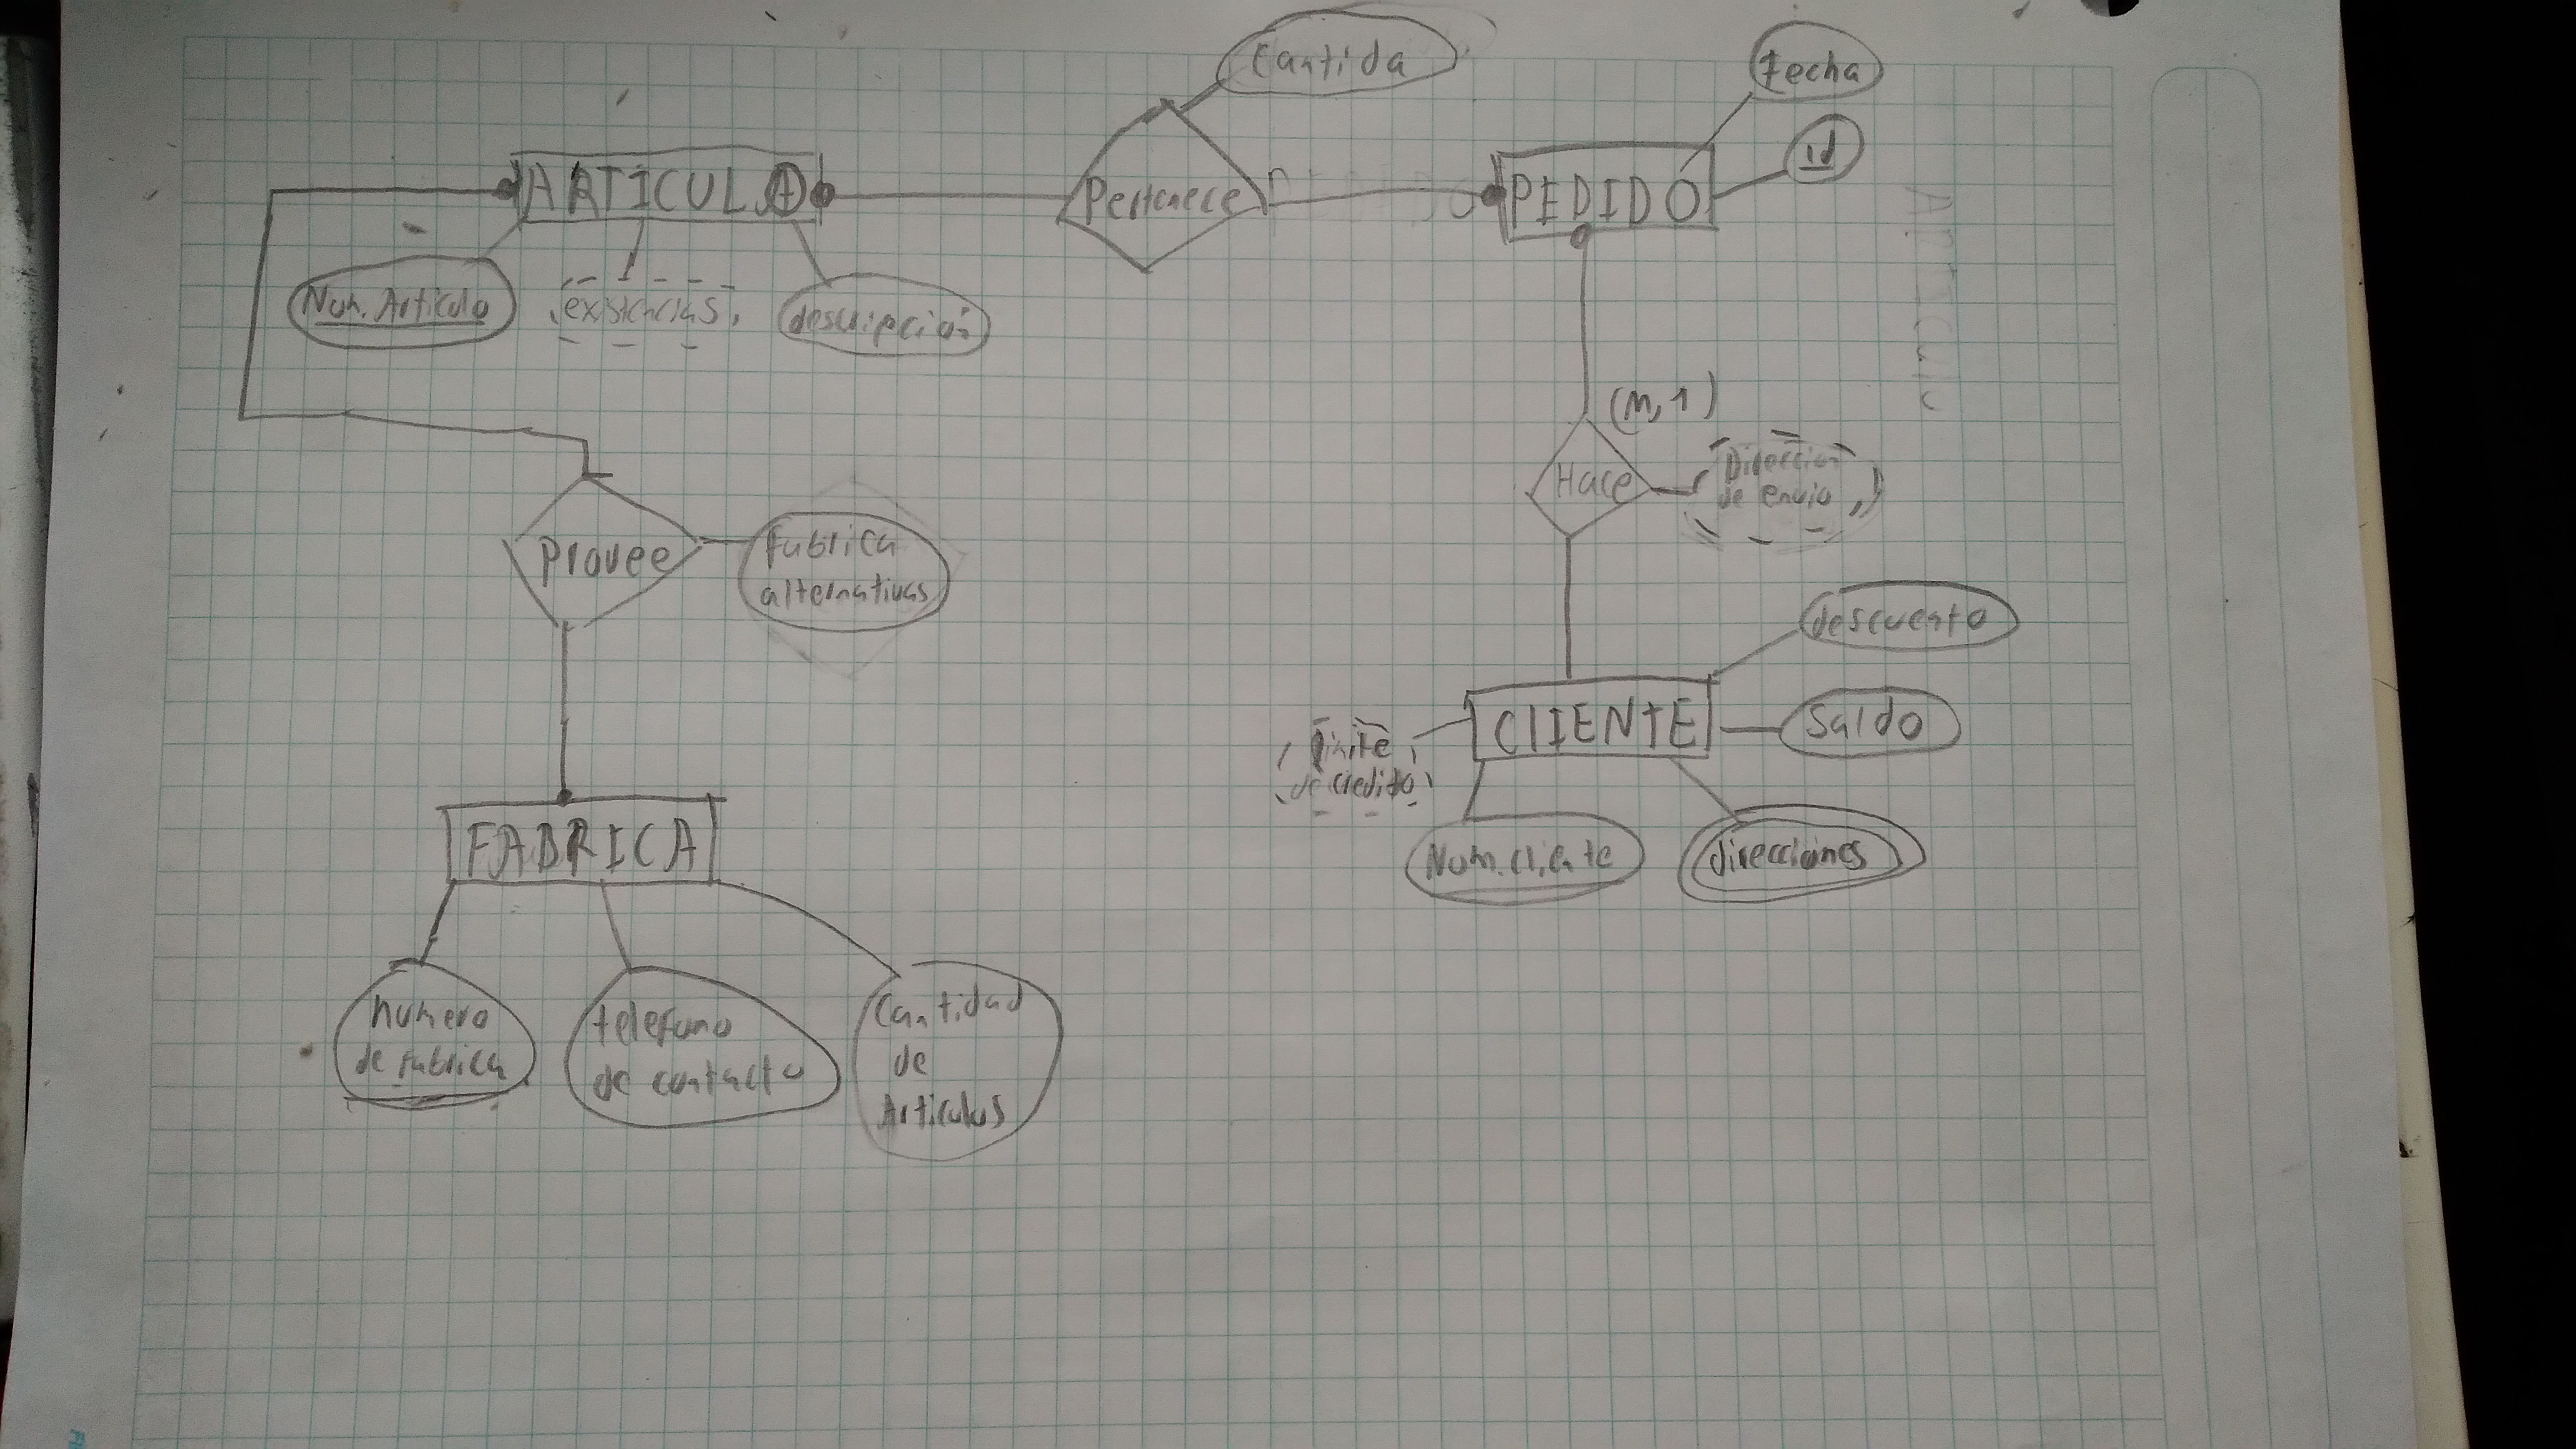 Cantida
Fecha
id
ARTICULO
Pertenece
PEDIDO
Num. Articulo
existencias
descripción
Articulo
(M, 1)
Hace
Direccion
de envio
Provee
fabrica
alternativas
descuento
CLIENTE
Saldo
limite
de credito
Num. cliente
direcciones
FABRICA
numero
de fabrica
telefono
de contacto
Cantidad
de
Articulos